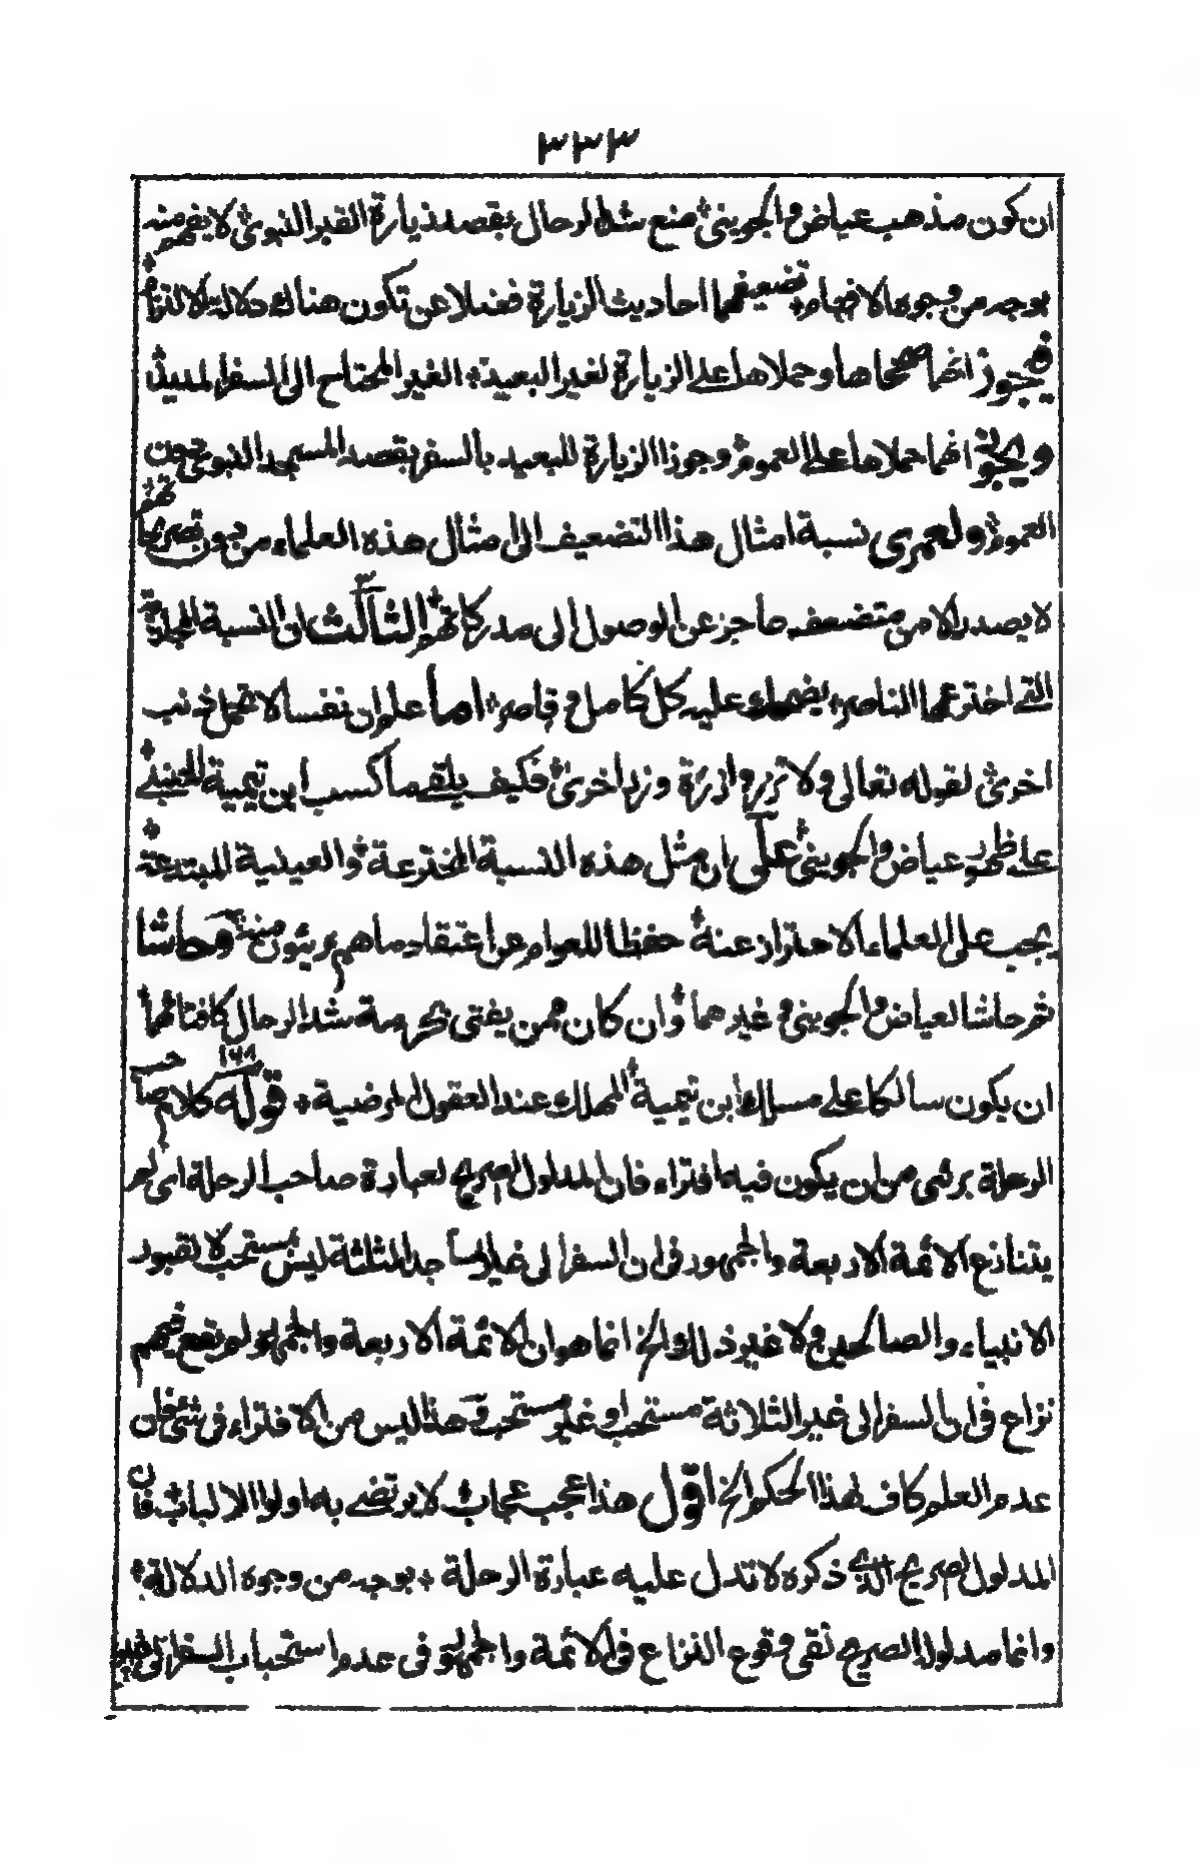 ٣٣٣
ان كون مذهب عياض والجويني منع شد الرحال بقصد زيارة القبر النبوي لا يفهم منه
بوجه من وجوه الافهام تضعيفهما احاديث الزيارة فضلا عن تكون هناك دلالة الالتزام
فيجوز انهما صححاها وحملاها على الزيارة لغير البعيد الغير المحتاج الى السفر المديد
ويجوز انهما حملاها على العموم وجوزا الزيارة للبعيد بالسفر بقصد المسجد النبوي دون
العموم ولعمري نسبة امثال هذا التضعيف الى امثال هذه العلماء من دون تصريحهما
لا يصدر الا من متضعف عاجز عن الوصول الى مدركاتهم الثالث ان النسبة المجملة
التي اخترعها الناصر يضحك عليه كل كامل وقاصر اما علم ان نفسا لا تحمل ذنب
اخرى لقوله تعالى ولا تزر وازرة وزر اخرى فكيف يلقي ما كسب ابن تيمية الحنبلي
على ظهر عياض والجويني على ان مثل هذه النسبة المخترعة والعينية المبتدعة
يجب على العلماء الاحتراز عنه حفظا للعوام عن اعتقاد ما هم بريئون منه وحاشا
ثم حاشا لعياض والجويني وغيرهما وان كان ممن يفتي بحرمة شد الرحال كافتائهما
ان يكون سالكا على مسلك ابن تيمية المهلك عند العقول المرضية قوله ١٤٨ كلام صاحب
الرحلة بريء من ان يكون فيه افتراء فان المدلول الصريح لعبارة صاحب الرحلة اي لم
يتنازع الائمة الاربعة والجمهور في ان السفر الى غير المساجد الثلاثة ليس بمستحب لا لقبور
الانبياء والصالحين ولا غير ذلك الخ انما هو ان الائمة الاربعة والجمهور لم يقع فيهم
نزاع في ان السفر الى غير الثلاثة مستحب او غير مستحب وهذا ليس من الافتراء في شيء فان
عدم العلم كاف لهذا الحكم الخ اقول هذا عجب عجاب لا يرتضي به اولوا الالباب فان
المدلول الصريح الذي ذكره لا تدل عليه عبارة الرحلة بوجه من وجوه الدلالة
وانما مدلوله الصريح نفي وقوع النزاع في الائمة والجمهور في عدم استحباب السفر الى